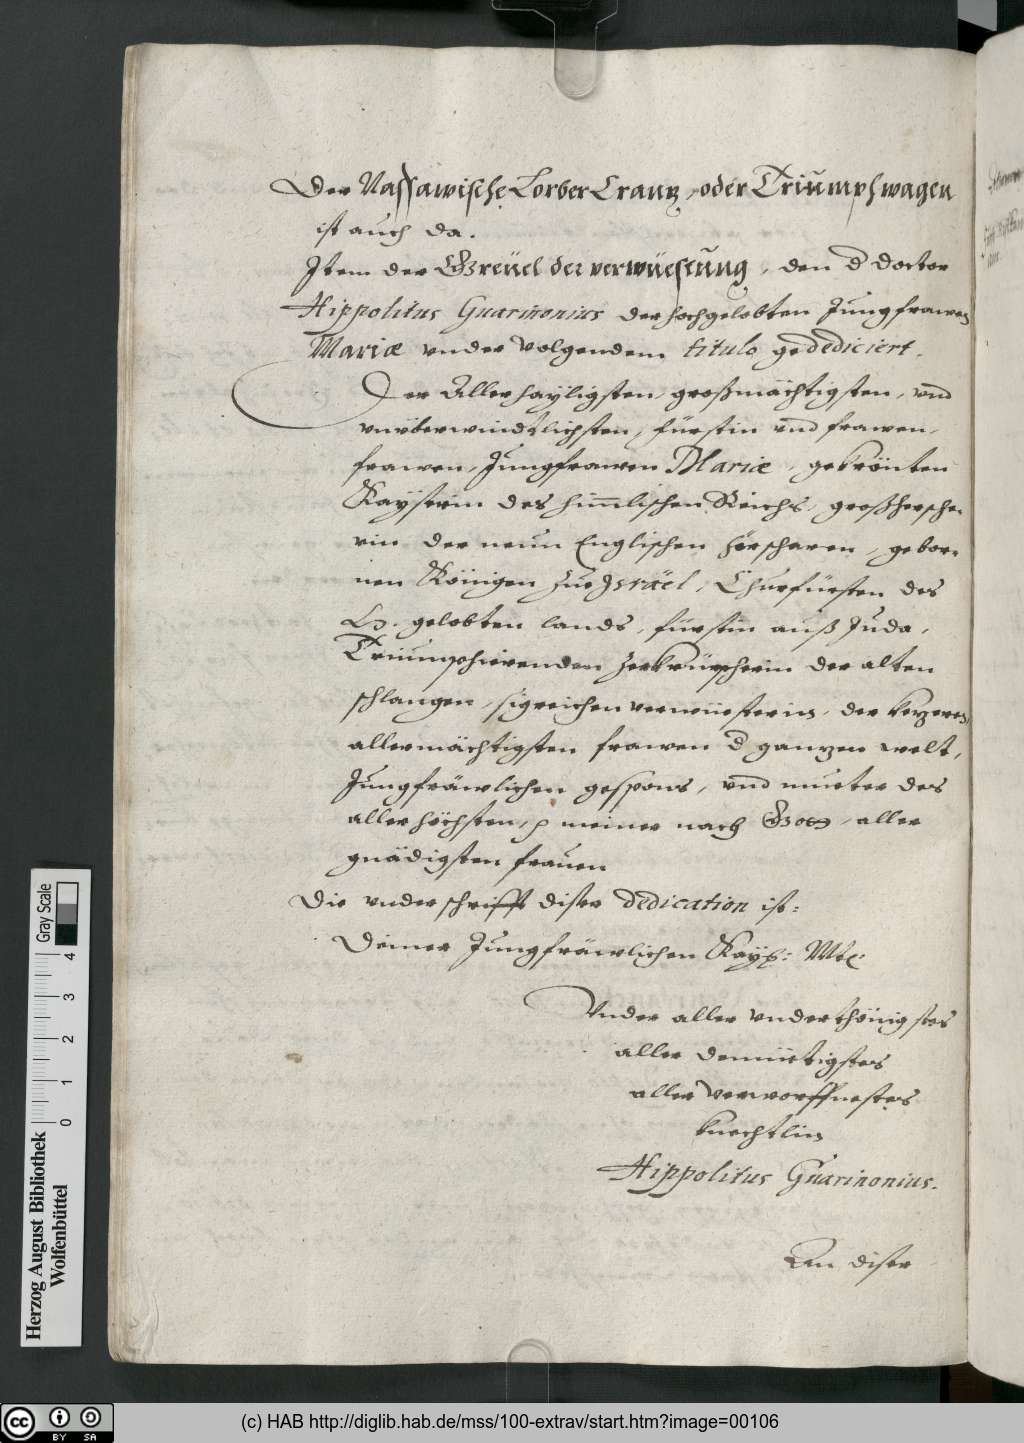 Der Nassawische Lorber Crantz, oder Triumphwagen
ist auch da.
Item der Greüel der verwüestung, den d Doctor
Hippolitus Guarinonius der hochgelobten Jungfrawen
Mariæ vnder volgendem titulo gedediciert.
Der Aller hayligsten, großmächtigsten, vnd
vnüberwindtlichsten, fürstin vnd frawen,
frawen, Jungfrawen Mariæ, gekrönten
Kayserin des himlischen Reichs, großhersche-
rin der neun Englischen hörscharen, gebor-
nen Königen zue Israël, Churfürsten des
H. gelobten lands, fürstin auß Juda,
Triumphierenden zerknürscherin der alten
schlangen, sigreichen verwüesterin, der ketzeren,
allermächtigsten frawen d gantzen welt,
Jungfräwlichen gespons, vnd mueter des
aller höchsten, meiner nach Gott, aller
gnädigsten frauen
Die vnderschrifft diser dedication ist:
Deiner Jungfräwlichen Kayß: Mtt:
Vnder aller vnderthönigstes
aller demüetigstes
aller verworffnestes
knechtlin
Hippolitus Guarinonius.
An diser
Herzog August Bibliothek
Wolfenbüttel
0 1 2 3 4
Gray Scale
cc BY SA
(c) HAB http://diglib.hab.de/mss/100-extrav/start.htm?image=00106